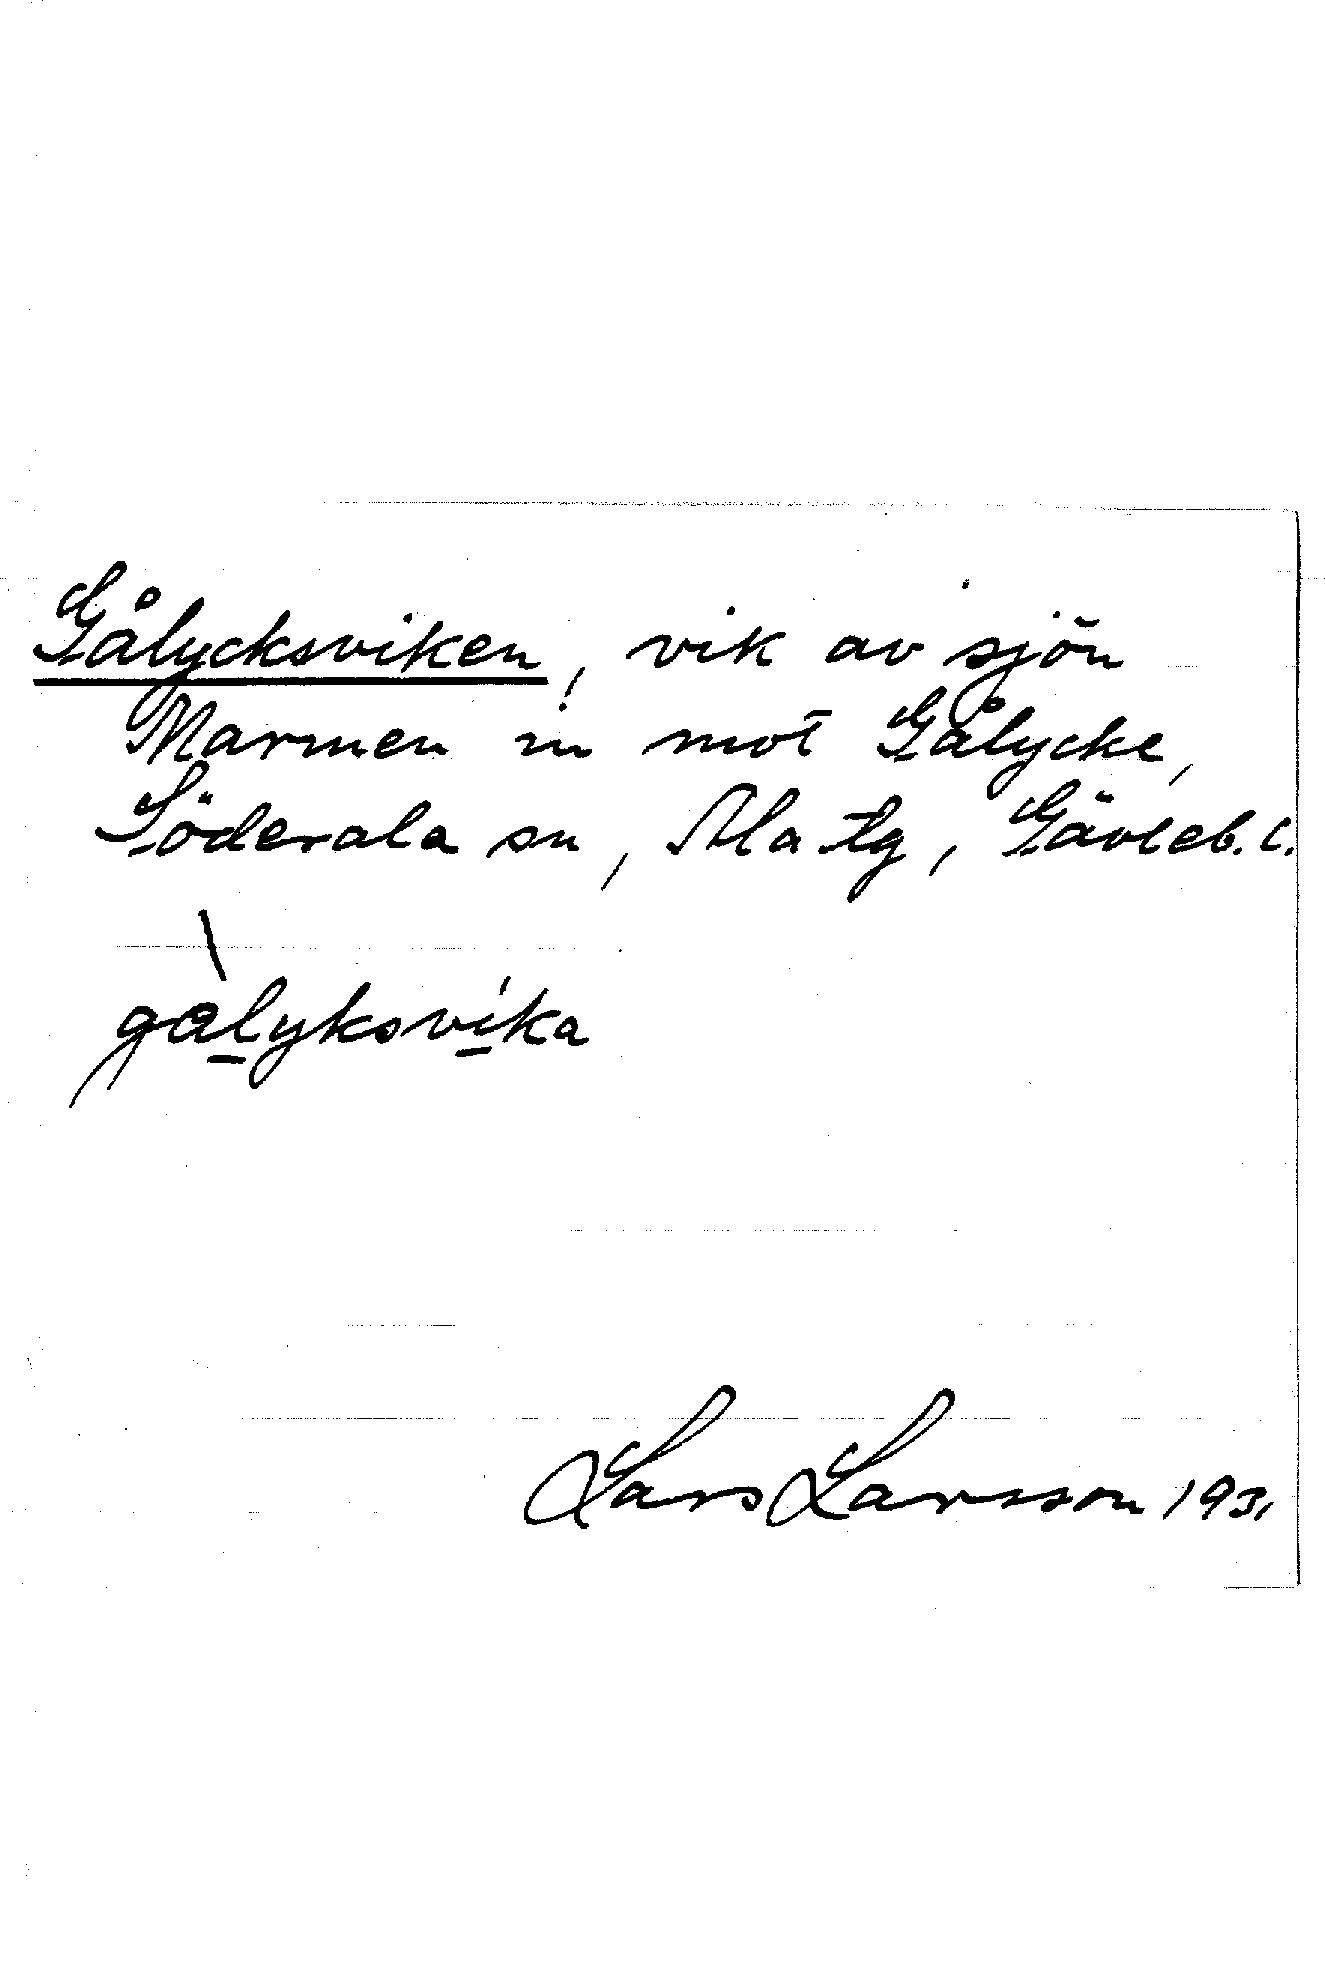 Gålycksviken, vik av sjön
Marmen in mot Gålycke,
Söderala sn, Ala tg, Gävleb. l.
gàlyksvíka
Lars Larsson 1931